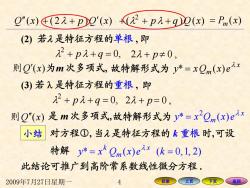 Q″(x)+(2λ+p)Q′(x)+(λ²+pλ+q)Q(x)=Pₘ(x)
(2) 若λ是特征方程的单根,即
λ²+pλ+q=0, 2λ+p≠0,
则Q′(x)为m次多项式,故特解形式为 y*=xQₘ(x)e^{λx}
(3) 若λ是特征方程的重根,即
λ²+pλ+q=0, 2λ+p=0,
则Q″(x)是m次多项式,故特解形式为 y*=x²Qₘ(x)e^{λx}
小结 对方程①,当λ是特征方程的k重根时,可设
特解 y*=x^k Qₘ(x)e^{λx} (k=0,1,2)
此结论可推广到高阶常系数线性微分方程.
2009年7月27日星期一 4